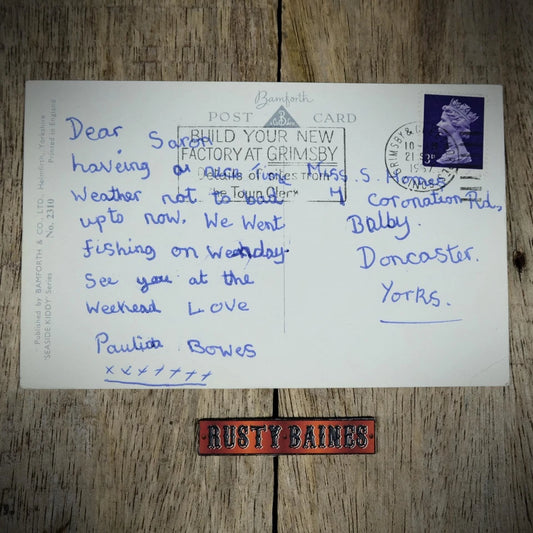 Bamforth
POST CARD
Dear Saron
haveing a nice time
Weather not to bad
upto now, We Went
fishing on Wenday.
See you at the
Weekend LOVE
Bowes
xxxxxxx
BUILD YOUR NEW
FACTORY AT GRIMSBY
Details of sites from
the Town Clerk
GRIMSBY &
10-
21 S
Miss. S. Homes
4 Coronation Rd,
Balby.
Doncaster.
Yorks.
Published by BAMFORTH & CO., LTD., Holmfirth, Yorkshire
'SEASIDE KIDDY' Series No. 2310 Printed in England
·RUSTY·BAINES·